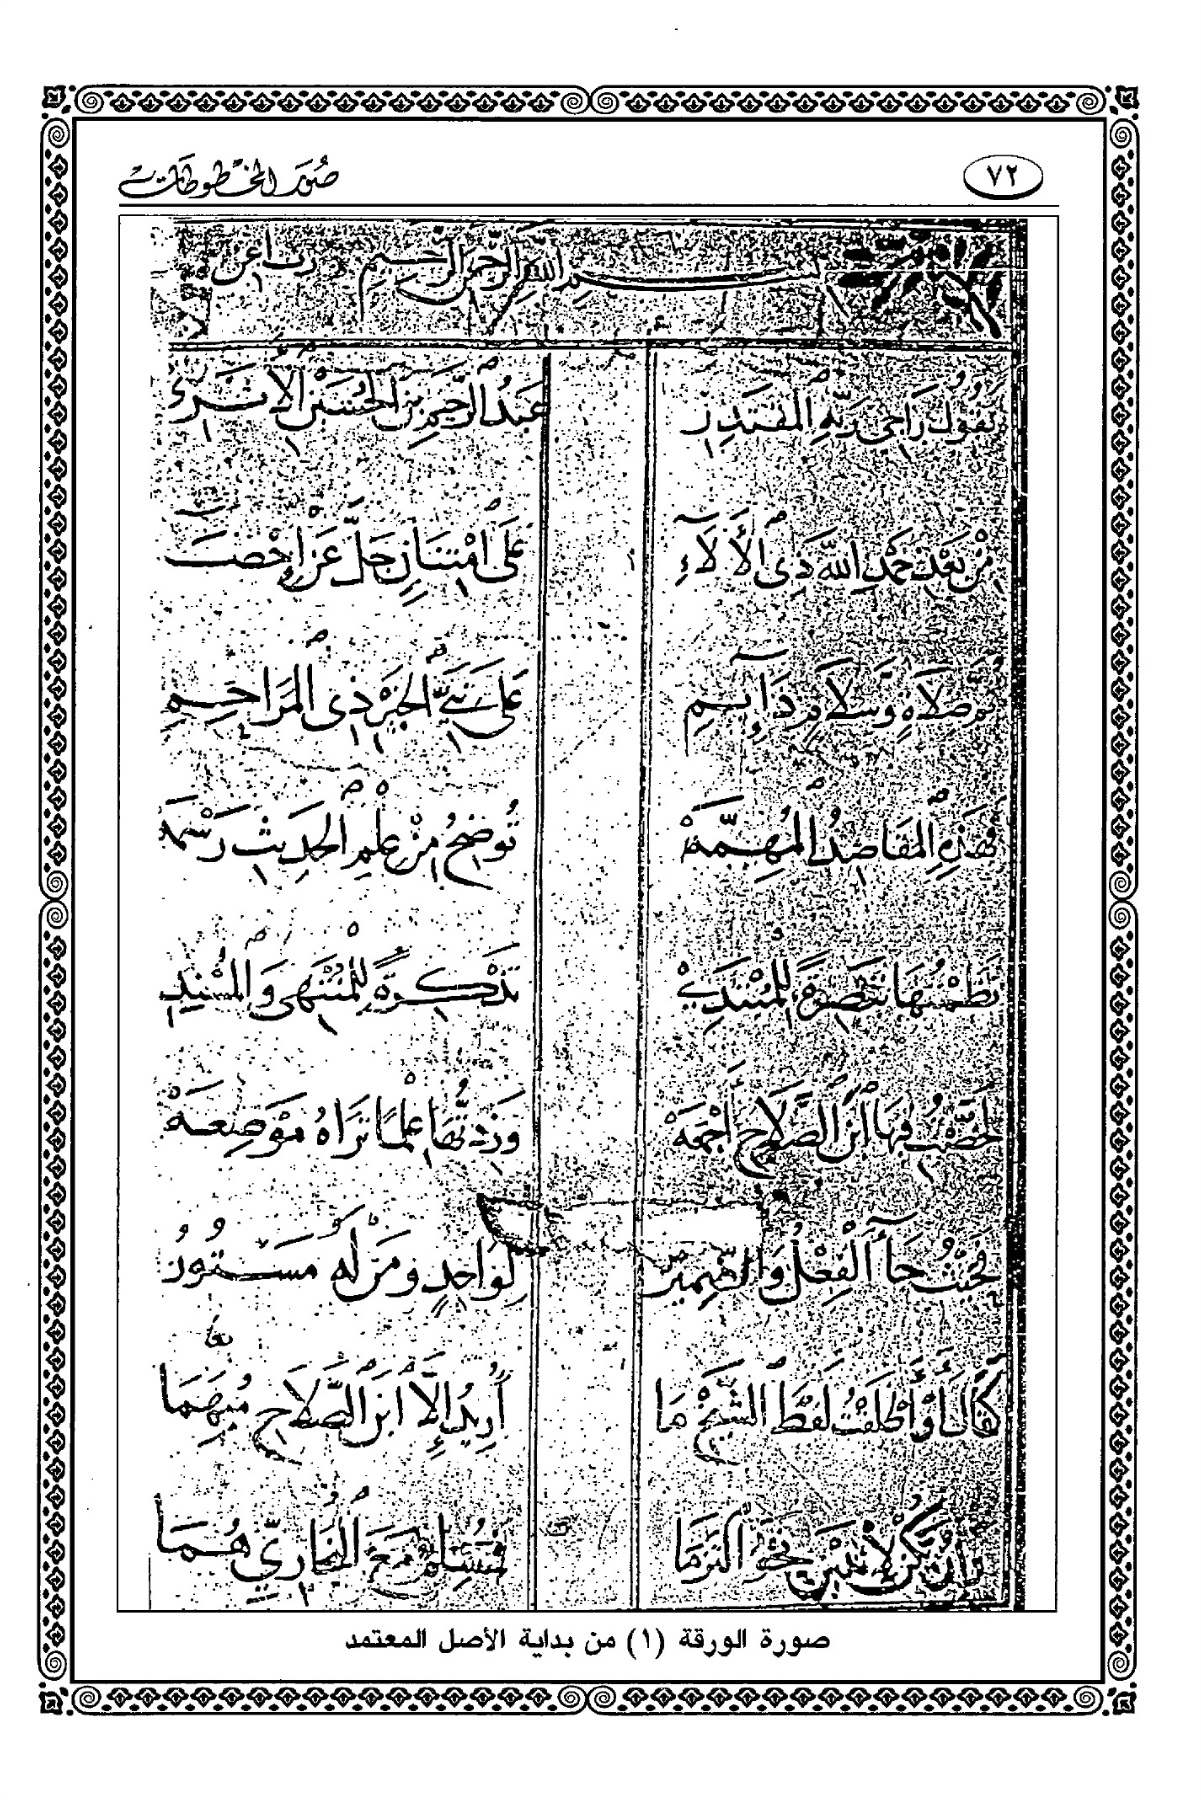 ٧٢ صور المخطوطات
بسم الله الرحمن الرحيم رب أعن
يَقُولُ رَاجِي رَبِّهِ المُقْتَدِرِ عَبْدُ الرَّحِيمِ بنُ الحُسَيْنِ الأَثَرِيُّ
مِنْ بَعْدِ حَمْدِ اللهِ ذِي الآلَاءِ عَلَى امْتِنَانٍ جَلَّ عَنْ إِحْصَاءِ
ثُمَّ صَلَاةٍ وَسَلَامٍ دَائِمِ عَلَى نَبِيِّ الخَيْرِ ذِي المَرَاحِمِ
فَهَذِهِ المَقَاصِدُ المُهِمَّهْ تُوضِحُ مِنْ عِلْمِ الحَدِيثِ رَسْمَهْ
نَظَمْتُهَا تَبْصِرَةً لِلْمُبْتَدِي تَذْكِرَةً لِلْمُنْتَهِي وَالمُسْنِدِ
لَخَّصْتُ فِيهَا ابْنَ الصَّلَاحِ أَجْمَعَهْ وَزِدْتُهَا عِلْمًا تَرَاهُ مَوْضِعَهْ
فَحَيْثُ جَاءَ الفِعْلُ وَالضَّمِيرُ لِوَاحِدٍ وَمَنْ لَهُ مَسْتُورُ
كَقَالَ أَوْ أَطْلَقْتُ لَفْظَ الشَّيْخِ مَا أُرِيدُ إِلَّا ابْنَ الصَّلَاحِ مُبْهَمَا
وَإِنْ يَكُنْ لِاثْنَيْنِ نَحْوُ التَزَمَا فَمُسْلِمٌ مَعَ البُخَارِيِّ هُمَا
صورة الورقة (١) من بداية الأصل المعتمد